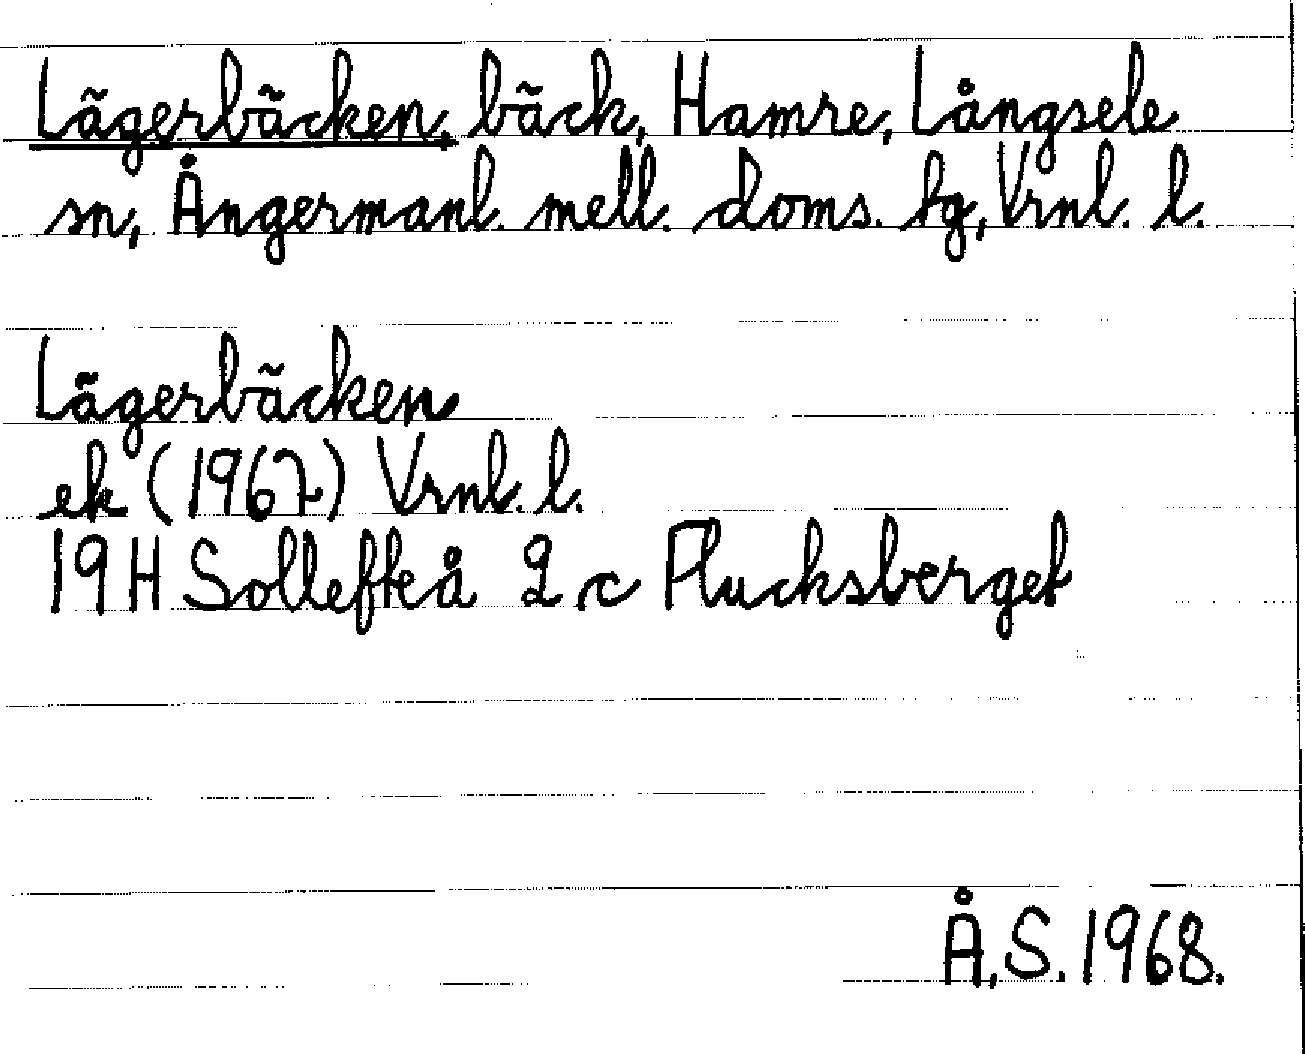 Lägerbäcken, bäck, Hamre, Långsele
sn, Ångermanl. mell. doms. tg, Vrnl. l.
Lägerbäcken
ek (1967) Vrnl. l.
19H Sollefteå 2 c Flucksberget
Å.S. 1968.